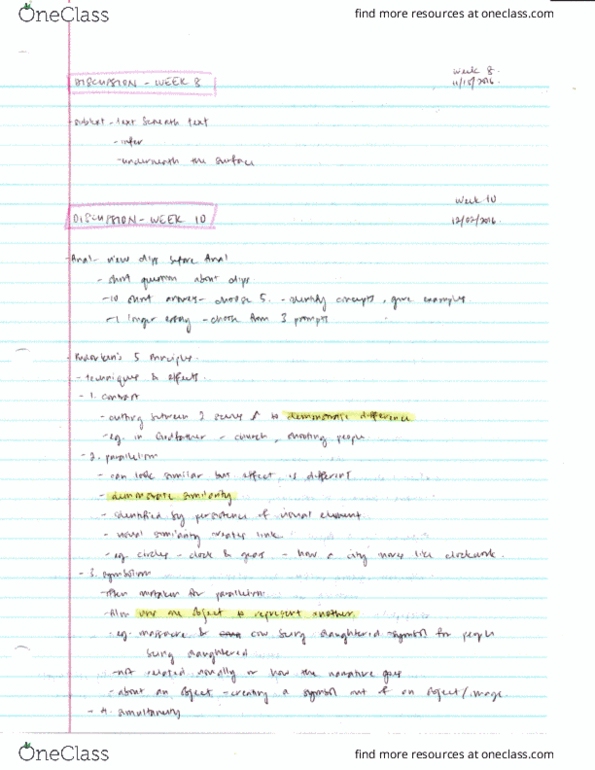 OneClass
find more resources at oneclass.com
Week 8.
11/18/2016.
DISCUSSION - WEEK 8
- subtext - text beneath text
- infer
- underneath the surface
Week 10
12/02/2016
DISCUSSION - WEEK 10
- Final - view clips before final
- short question about clips
- 10 short answers - choose 5. - identify concepts, give examples
- 1 longer essay - choose from 3 prompts
- 5 principles.
- techniques & effects.
- 1. contrast
- cutting between 2 scenes to demonstrate difference
- eg. in Godfather - church, shooting people
- 2. parallelism
- can look similar but effect is different
- demonstrate similarity
- identified by persistence of visual element
- visual similarity creates link
- eg. circles - clock & gears - how a city moves like clockwork.
- 3. symbolism
- often mistaken for parallelism
- film use one object to represent another.
- eg. massacre & cow being slaughtered - symbol for people
being slaughtered
- not related visually or how the narrative goes
- about an object - creating a symbol out of an object/image.
- 4. simultaneity
OneClass
find more resources at oneclass.com